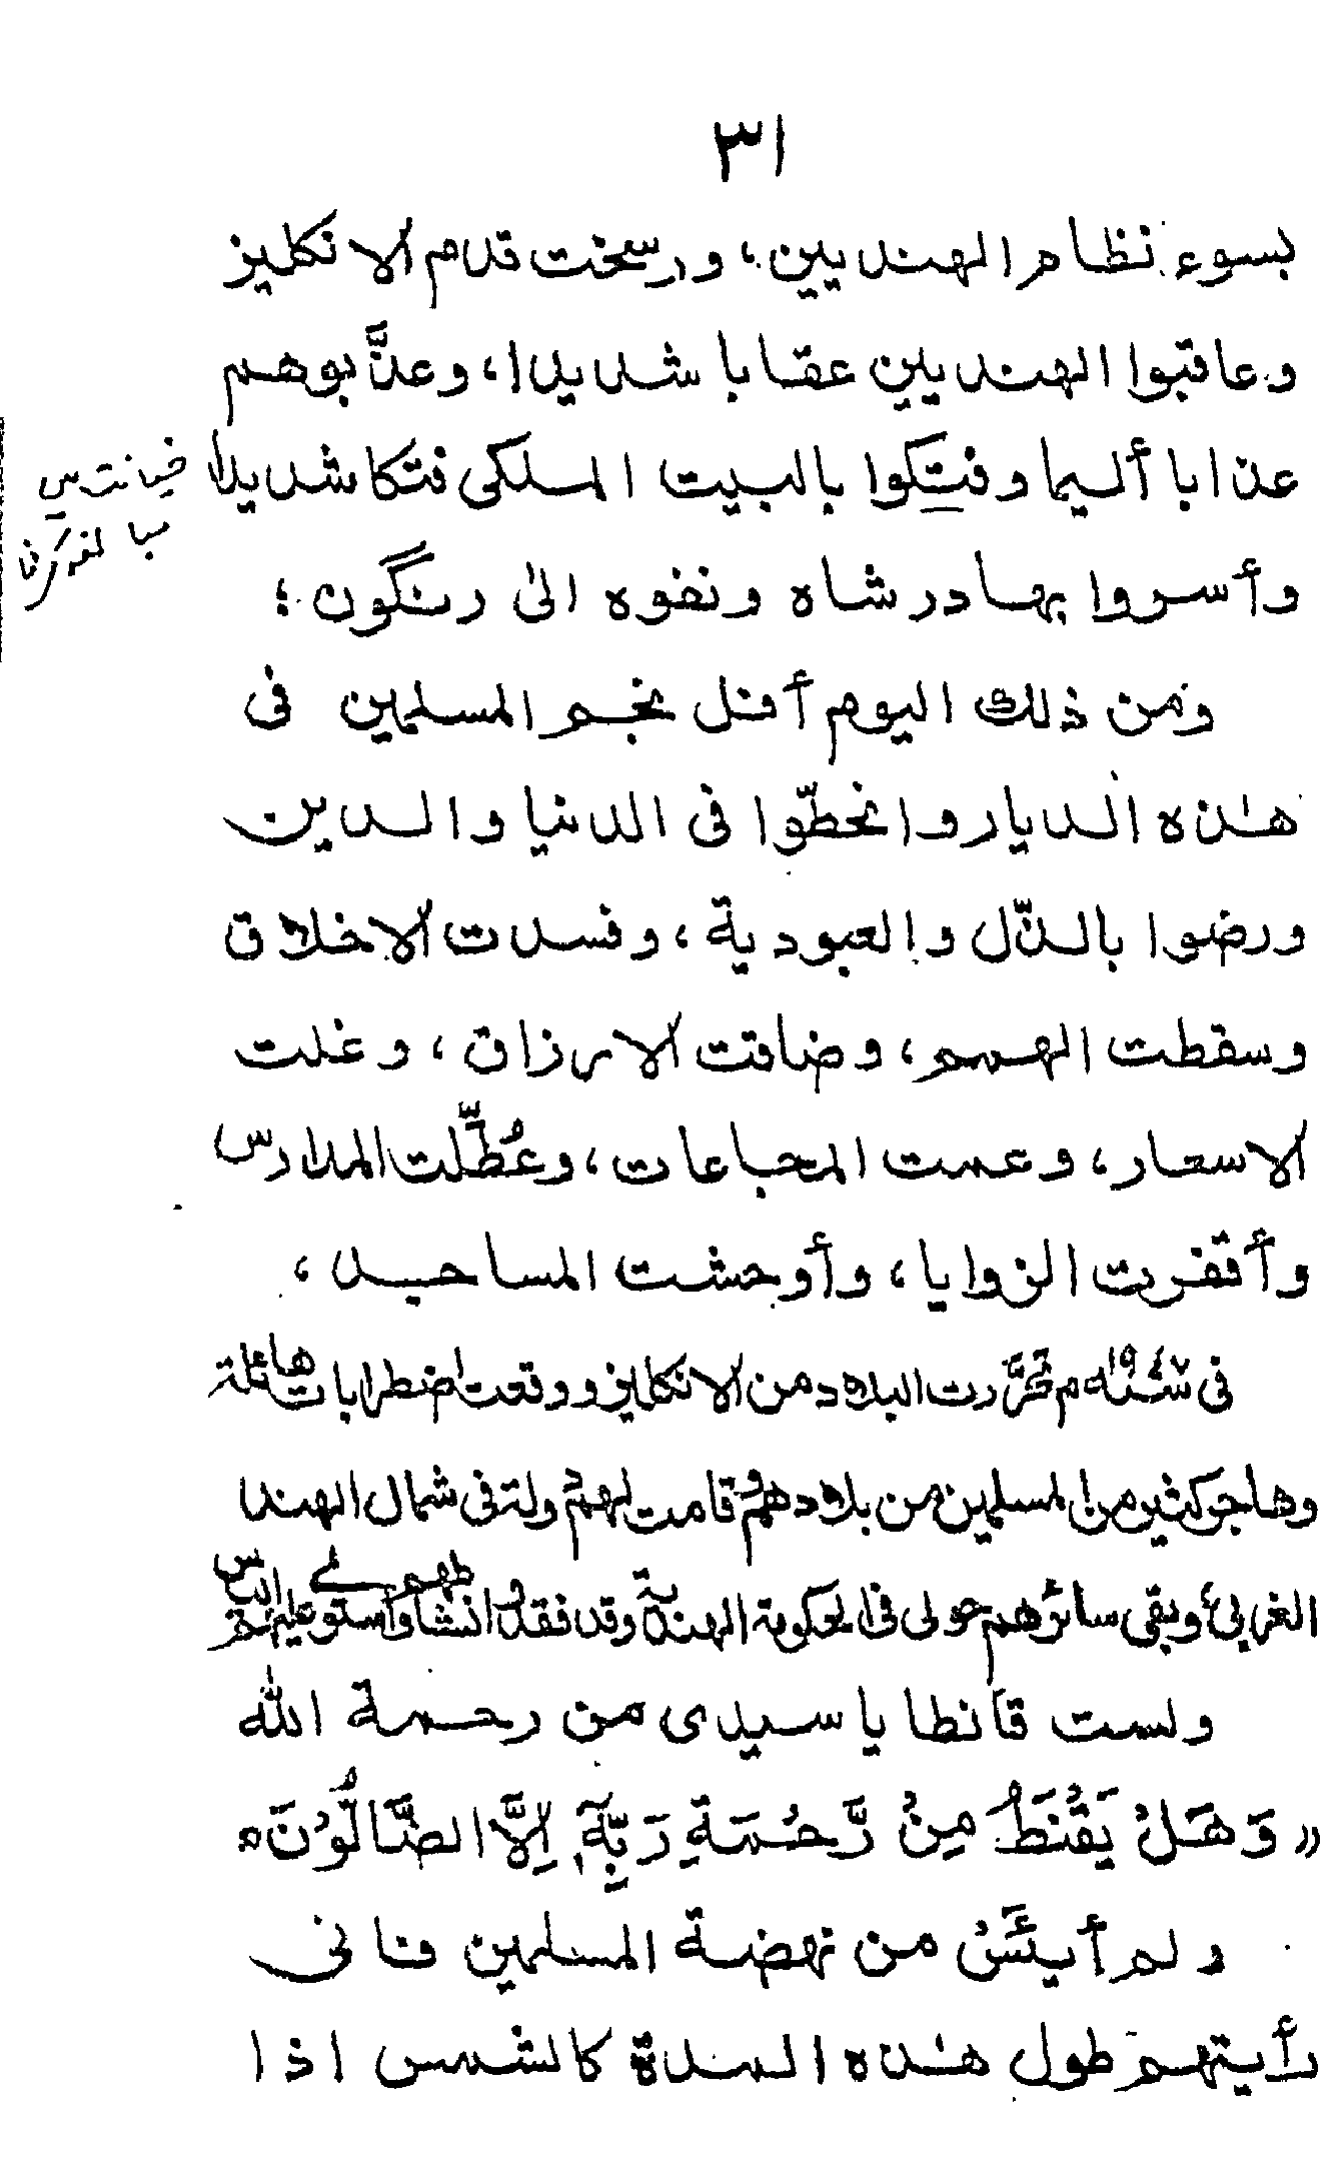 ٣١
بسوء نظام الهنديين، ورسخت قدم الانكليز
وعاقبوا الهنديين عقابا شديدا، وعذَّبوهم
عذابا أليما وفتكوا بالبيت الملكى فتكا شديدا
خيانت میں
مبالغہ کرنا
وأسروا بهادر شاه ونفوه الىٰ رنگون ؛
ومن ذلك اليوم أفل نجم المسلمين فى
هٰذه الديار وانحطّوا فى الدنيا والدين
ورضوا بالذّل والعبودية، وفسدت الاخلاق
وسقطت الهمم، وضاقت الارزاق، وغلت
الاسعار، وعمت المجاعات، وعُطِّلت المدارس
وأقفرت الزوايا، وأوحشت المساجد،
فى سنة ١٩٤٧م تحرَّرت البلاد من الانكليز ووقعت اضطرابات هائلة
وهاجر كثير من المسلمين من بلادهم وقامت لهم دولة فى شمال الهند
الغربى، وبقى سائرهم حولى فى الحكومة الهندية وقد فقدوا نشاطهم واستولى عليهم اليأس
ولست قانطا يا سيدى من رحمة الله
«وَهَلْ يَقْنَطُ مِنْ رَّحْمَةِ رَبِّهٖٓ اِلَّا الضَّالُّوْنَ»
ولم أيئَسْ من نهضة المسلمين فانى
رأيتهم طول هٰذه المدة كالشمس اذا